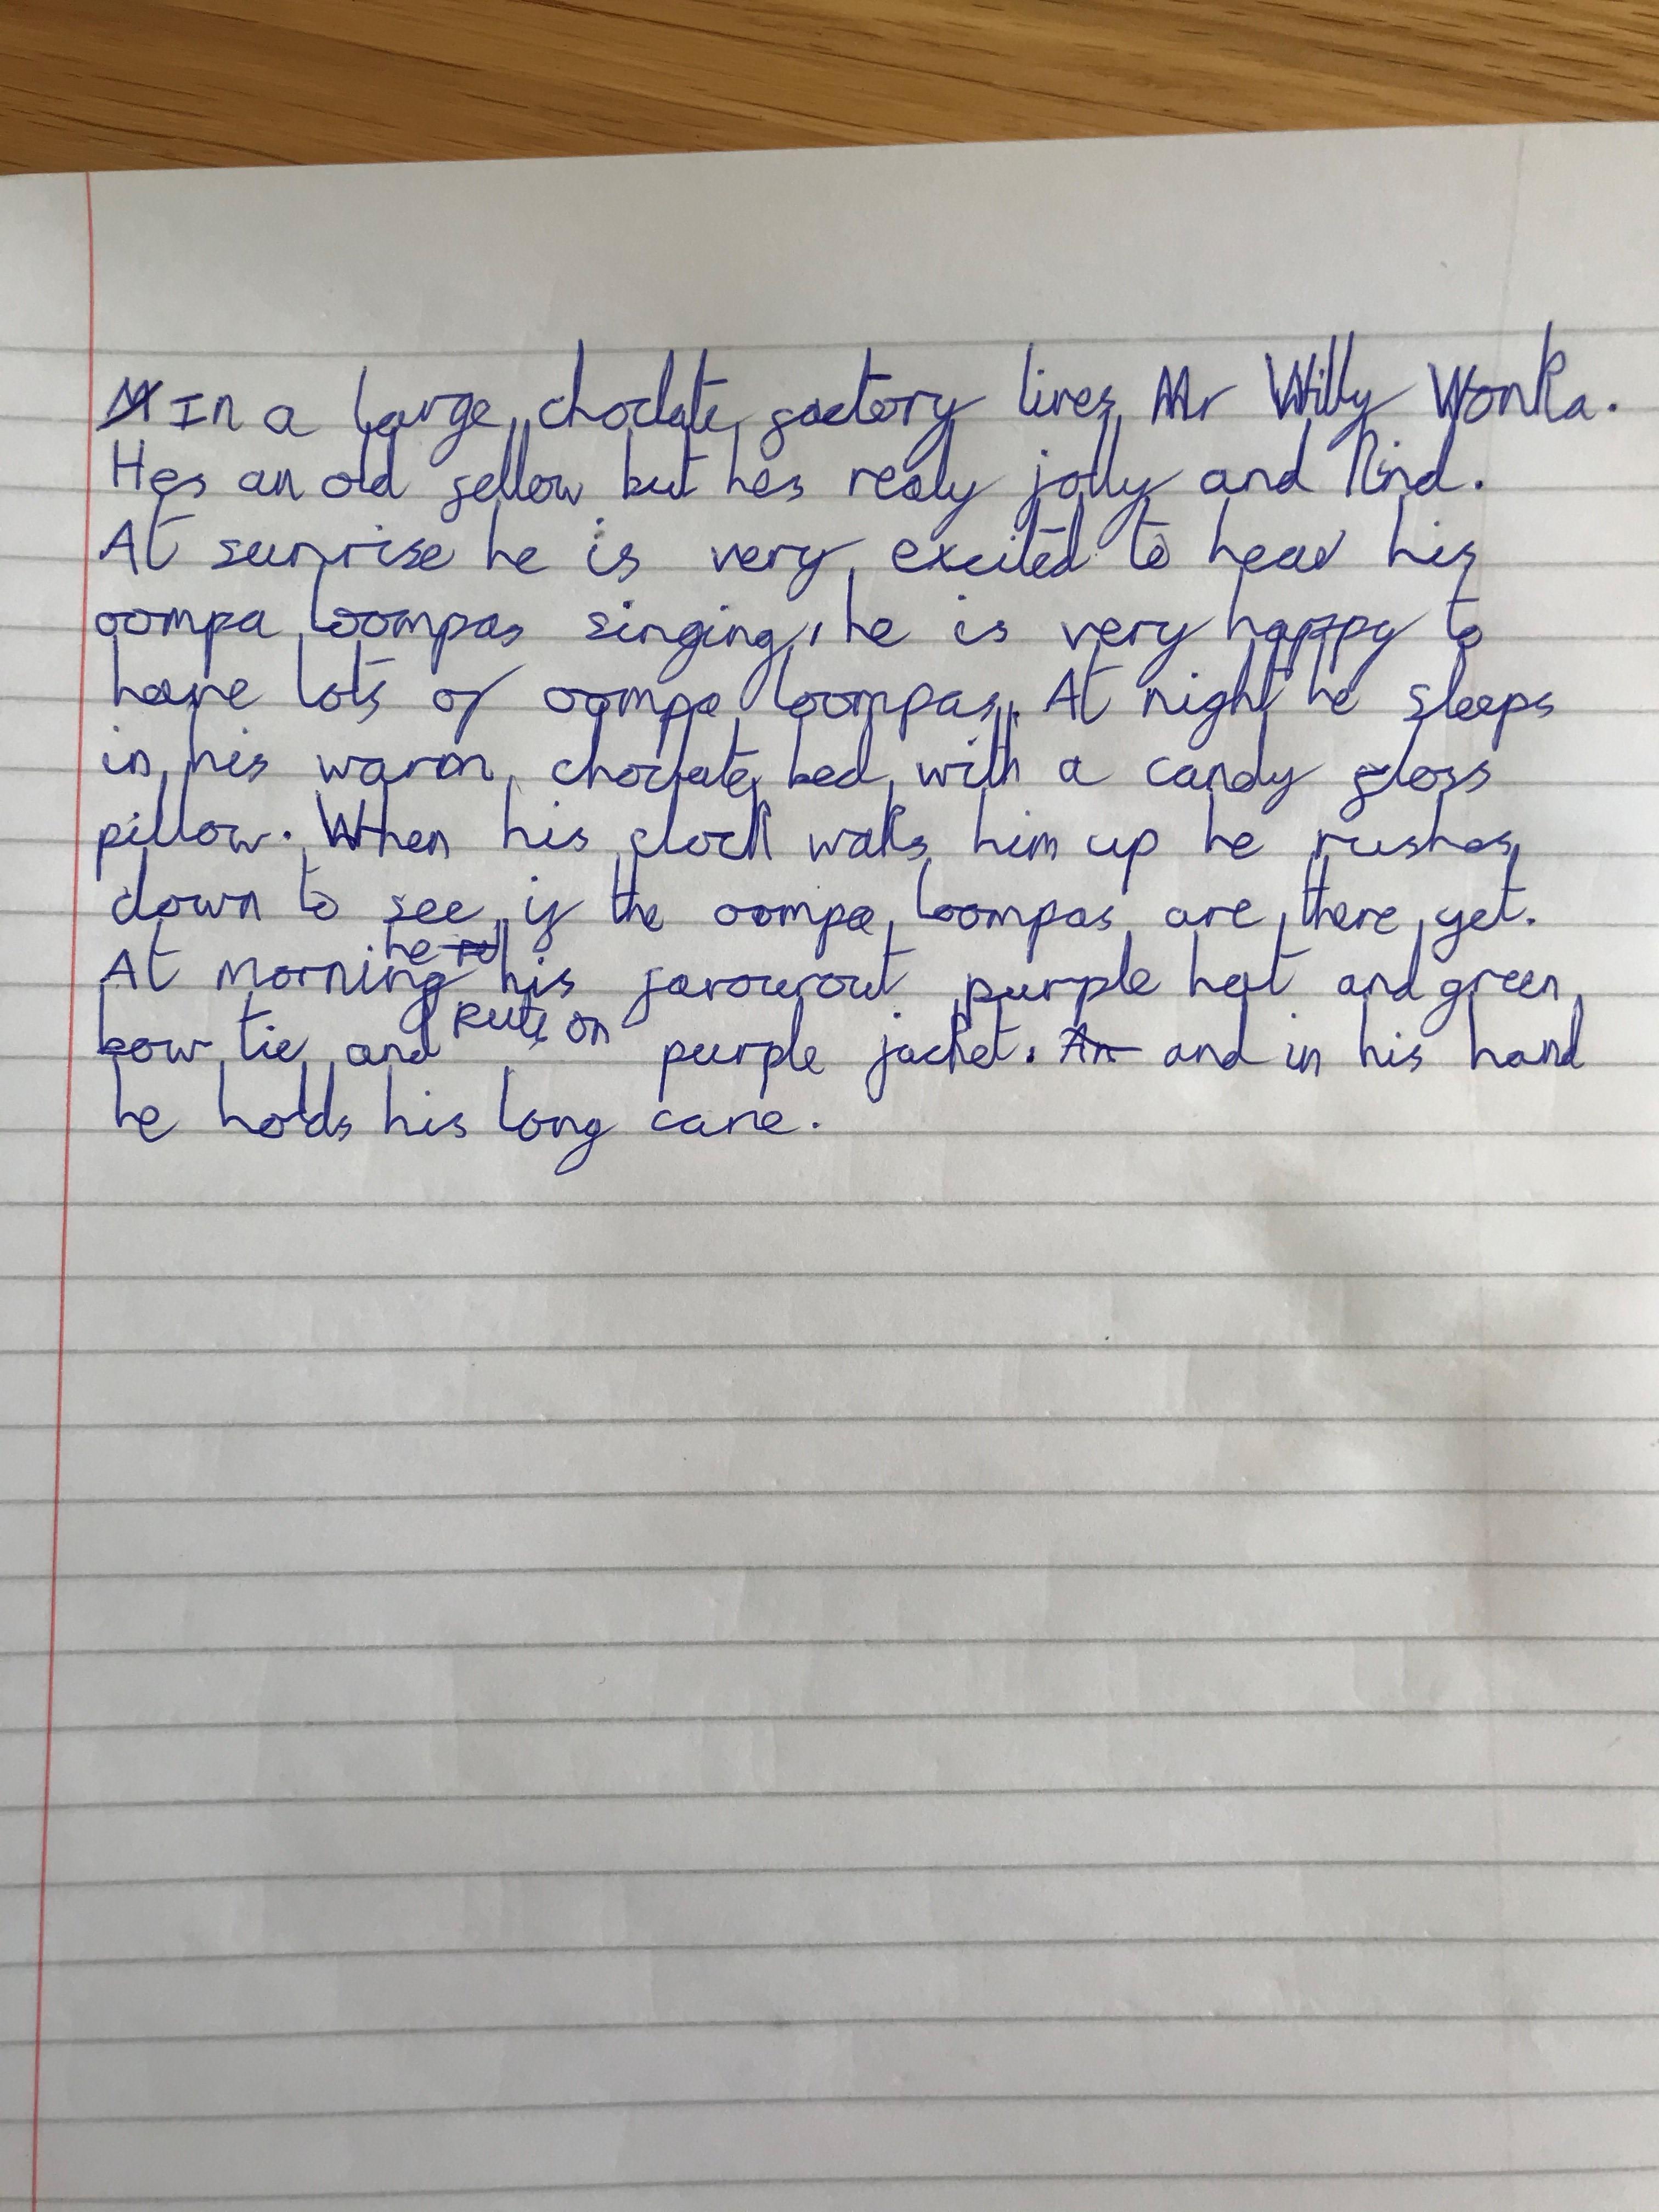 In a large choclate factory lives Mr Willy Wonka.
Hes an old fellow but hes realy jolly and kind.
At sunrise he is very excited to hear his
oompa loompas singing, he is very happy to
have lots of oompa loompas. At night he sleeps
in his warm choclate bed with a candy floss
pillow. When his clock waks him up he rushes
down to see if the oompa loompas are there yet.
he
At morning his favourout purple hat and green
puts on
bow tie and purple jacket. An and in his hand
he holds his long cane.